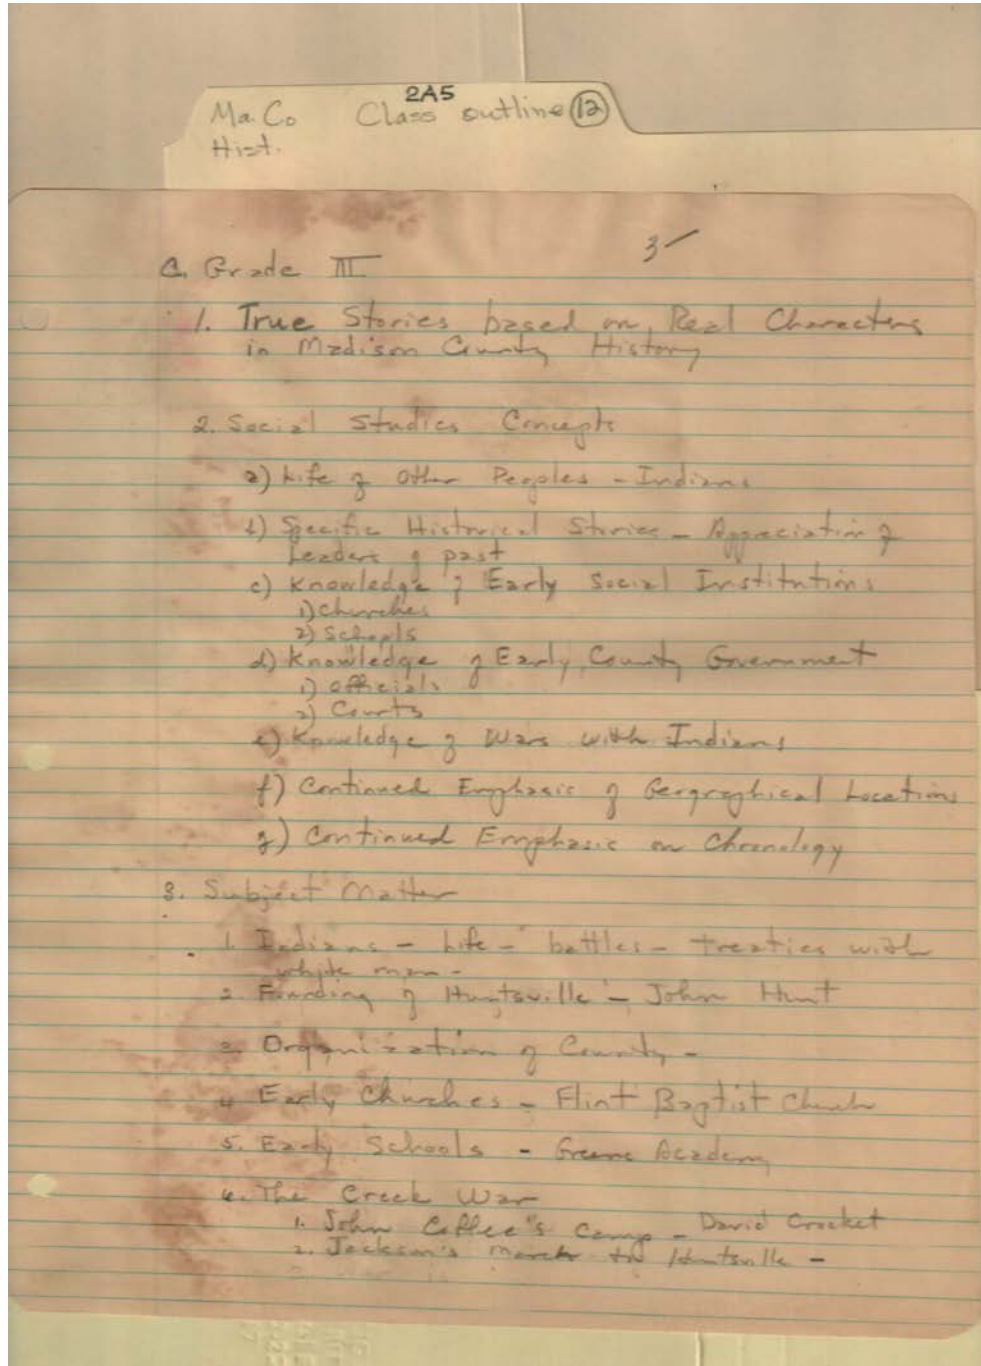 2A5
Ma. Co Class outline 12
Hist.
3
C. Grade III
1. True Stories based on Real Characters
in Madison County History
2. Social Studies Concepts
a) Life of Other Peoples - Indians
b) Specific Historical Stories - Appreciation of
Leaders of past
c) Knowledge of Early Social Institutions
1) Churches
2) Schools
d) Knowledge of Early County Government
1) Officials
2) Courts
e) Knowledge of Wars with Indians
f) Continued Emphasis of Geographical Locations
g) Continued Emphasis on Chronology
3. Subject Matter
1. Indians - Life - battles - treaties with
white man -
2. Founding of Huntsville - John Hunt
3. Organization of County -
4. Early Churches - Flint Baptist Church
5. Early Schools - Greene Academy
6. The Creek War
1. John Coffee's Camp - David Crocket
2. Jackson's March to Huntsville -